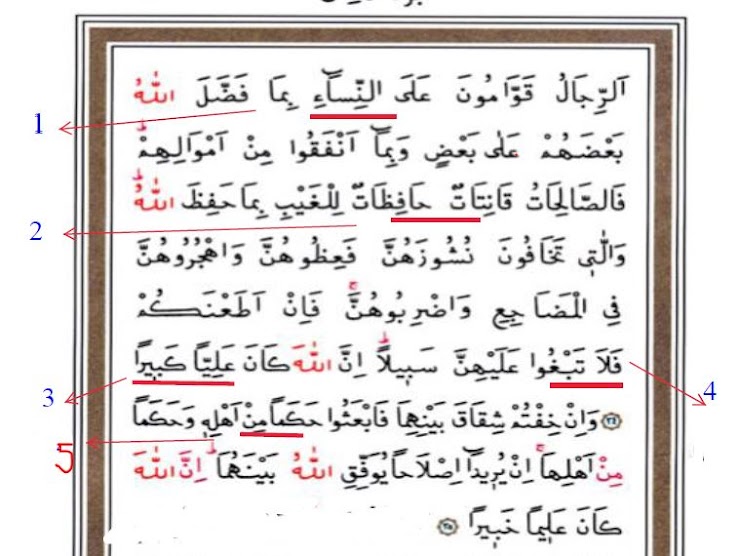 اَلرِّجَالُ قَوَّامُونَ عَلَى النِّسَٓاءِ بِمَا فَضَّلَ اللّٰهُ
1
بَعْضَهُمْ عَلٰى بَعْضٍ وَبِمَٓا اَنْفَقُوا مِنْ اَمْوَالِهِمْۜ
فَالصَّالِحَاتُ قَانِتَاتٌ حَافِظَاتٌ لِلْغَيْبِ بِمَا حَفِظَ اللّٰهُۜ
2
وَالّٰت۪ي تَخَافُونَ نُشُوزَهُنَّ فَعِظُوهُنَّ وَاهْجُرُوهُنَّ
فِي الْمَضَاجِعِ وَاضْرِبُوهُنَّۚ فَاِنْ اَطَعْنَكُمْ
فَلَا تَبْغُوا عَلَيْهِنَّ سَب۪يلًاۜ اِنَّ اللّٰهَ كَانَ عَلِيًّا كَب۪يرًا
3
4
﴿٣٤﴾ وَاِنْ خِفْتُمْ شِقَاقَ بَيْنِهِمَا فَابْعَثُوا حَكَمًا مِنْ اَهْلِه۪ وَحَكَمًا
5
مِنْ اَهْلِهَاۚ اِنْ يُر۪يدَٓا اِصْلَاحًا يُوَفِّقِ اللّٰهُ بَيْنَهُمَاۜ اِنَّ اللّٰهَ
كَانَ عَل۪يمًا خَب۪يرًا ﴿٣٥﴾